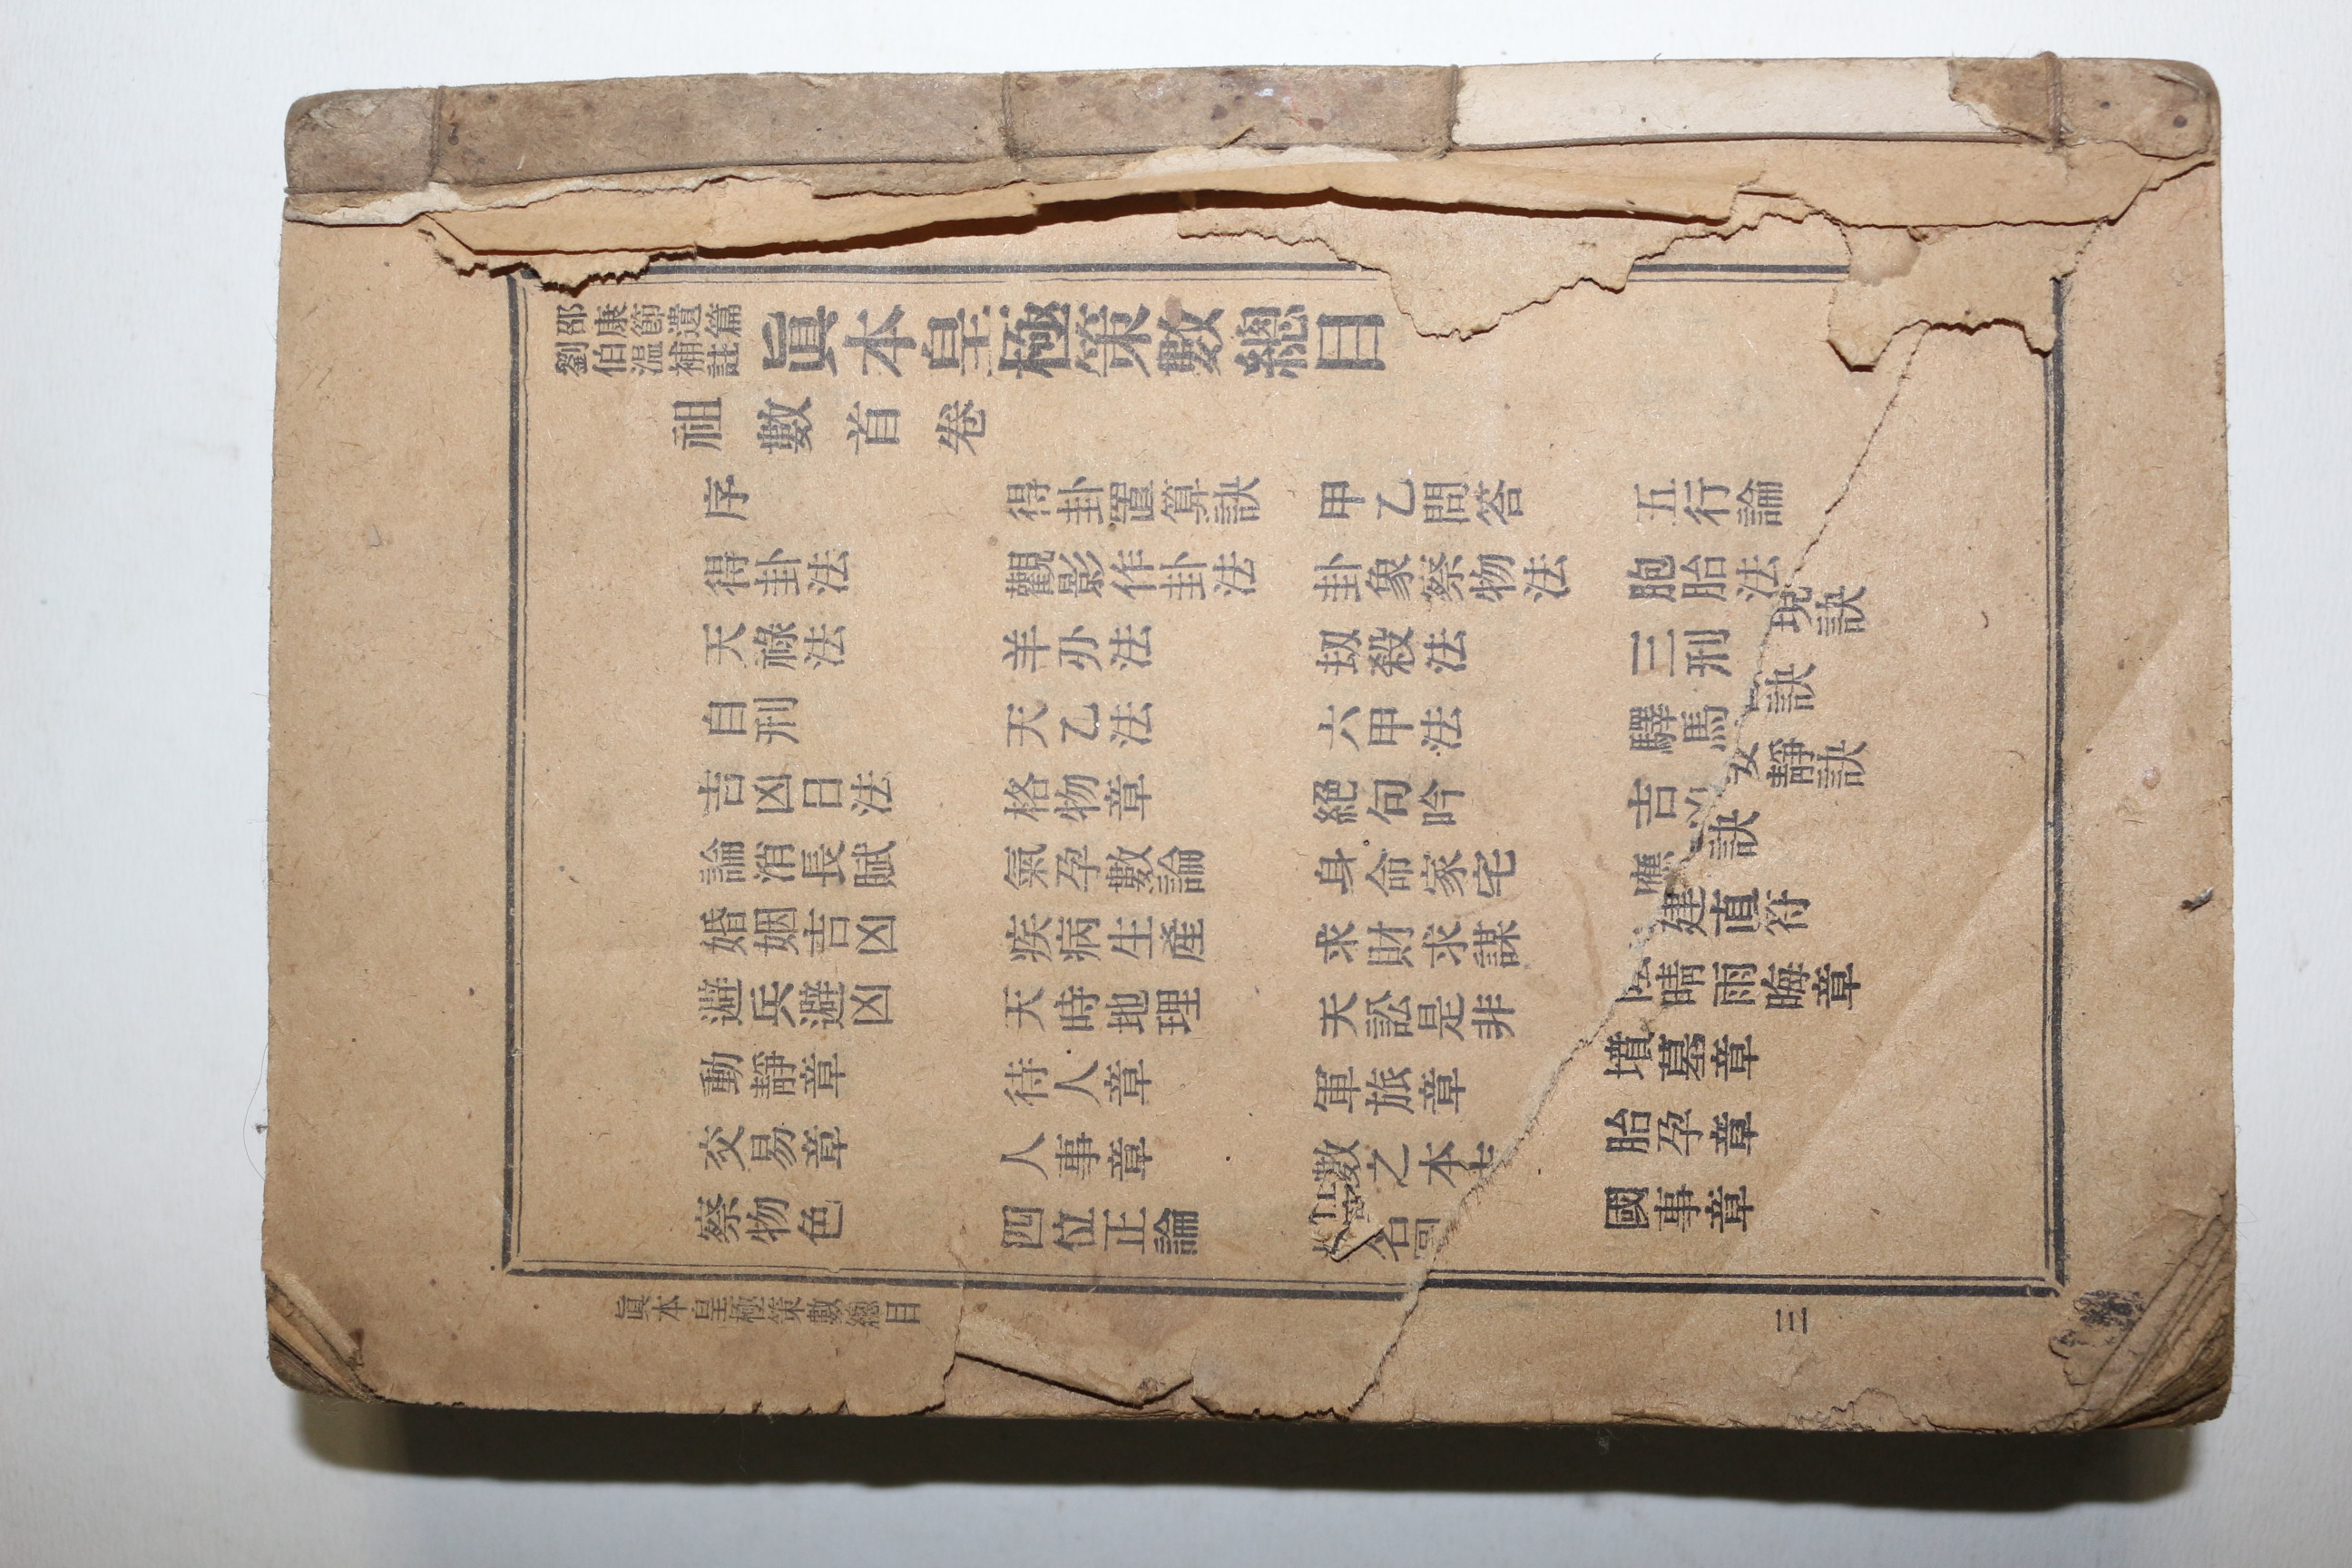 邵康節遺篇
劉伯溫補註
眞本皇極策數總目
祖數首卷
序 得卦置算訣 甲乙問答 五行論
得卦法 觀影作卦法 卦象察物法 胞胎法
天祿法 羊刅法 刼殺法 三刑 現訣
自刑 天乙法 六甲法 驛馬 訣
吉凶日法 格物章 絕句吟 吉凶 安靜訣
論消長賦 氣孕數論 身命家宅 應 訣
婚姻吉凶 疾病生產 求財求謀 建直符
避兵避凶 天時地理 天訟是非 陰晴雨晦章
動靜章 待人章 軍旅章 墳墓章
交易章 人事章 數之本 胎孕章
察物色 四位正論 名圖 國事章
眞本皇極策數總目
三